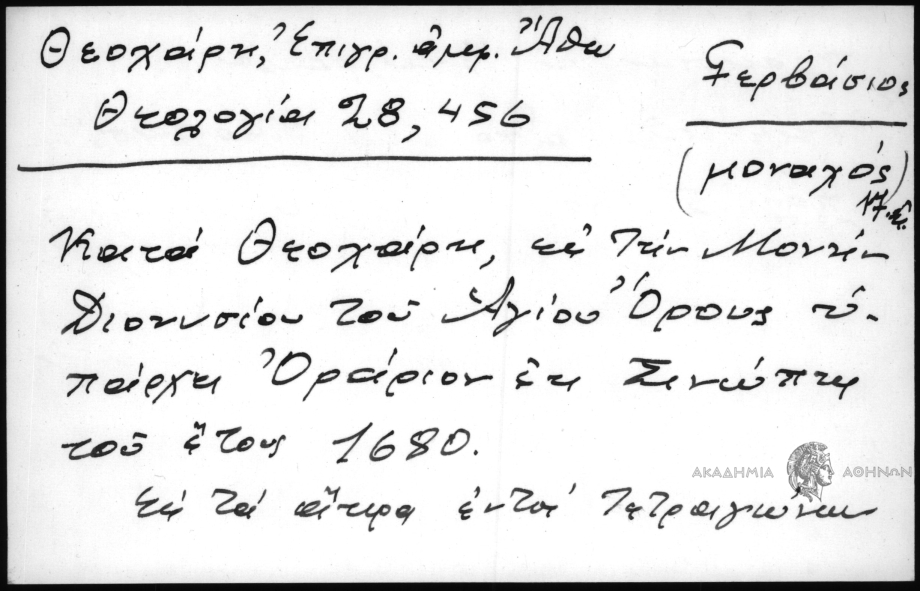 Θεοχάρη, Ἐπιγρ. ἀμφ. Ἄθω
Θεολογία 28, 456
Γερβάσιος
(μοναχός)
17. αἰ.
Κατά Θεοχάρη, εἰς τήν Μονήν
Διονυσίου τοῦ Ἁγίου Ὄρους ὑ-
πάρχει Ὀράριον ἐκ Σινώπης
τοῦ ἔτους 1680.
Εἰς τά ἄκρα ἐντός τετραγώνου
ΑΚΑΔΗΜΙΑ ΑΘΗΝΩΝ